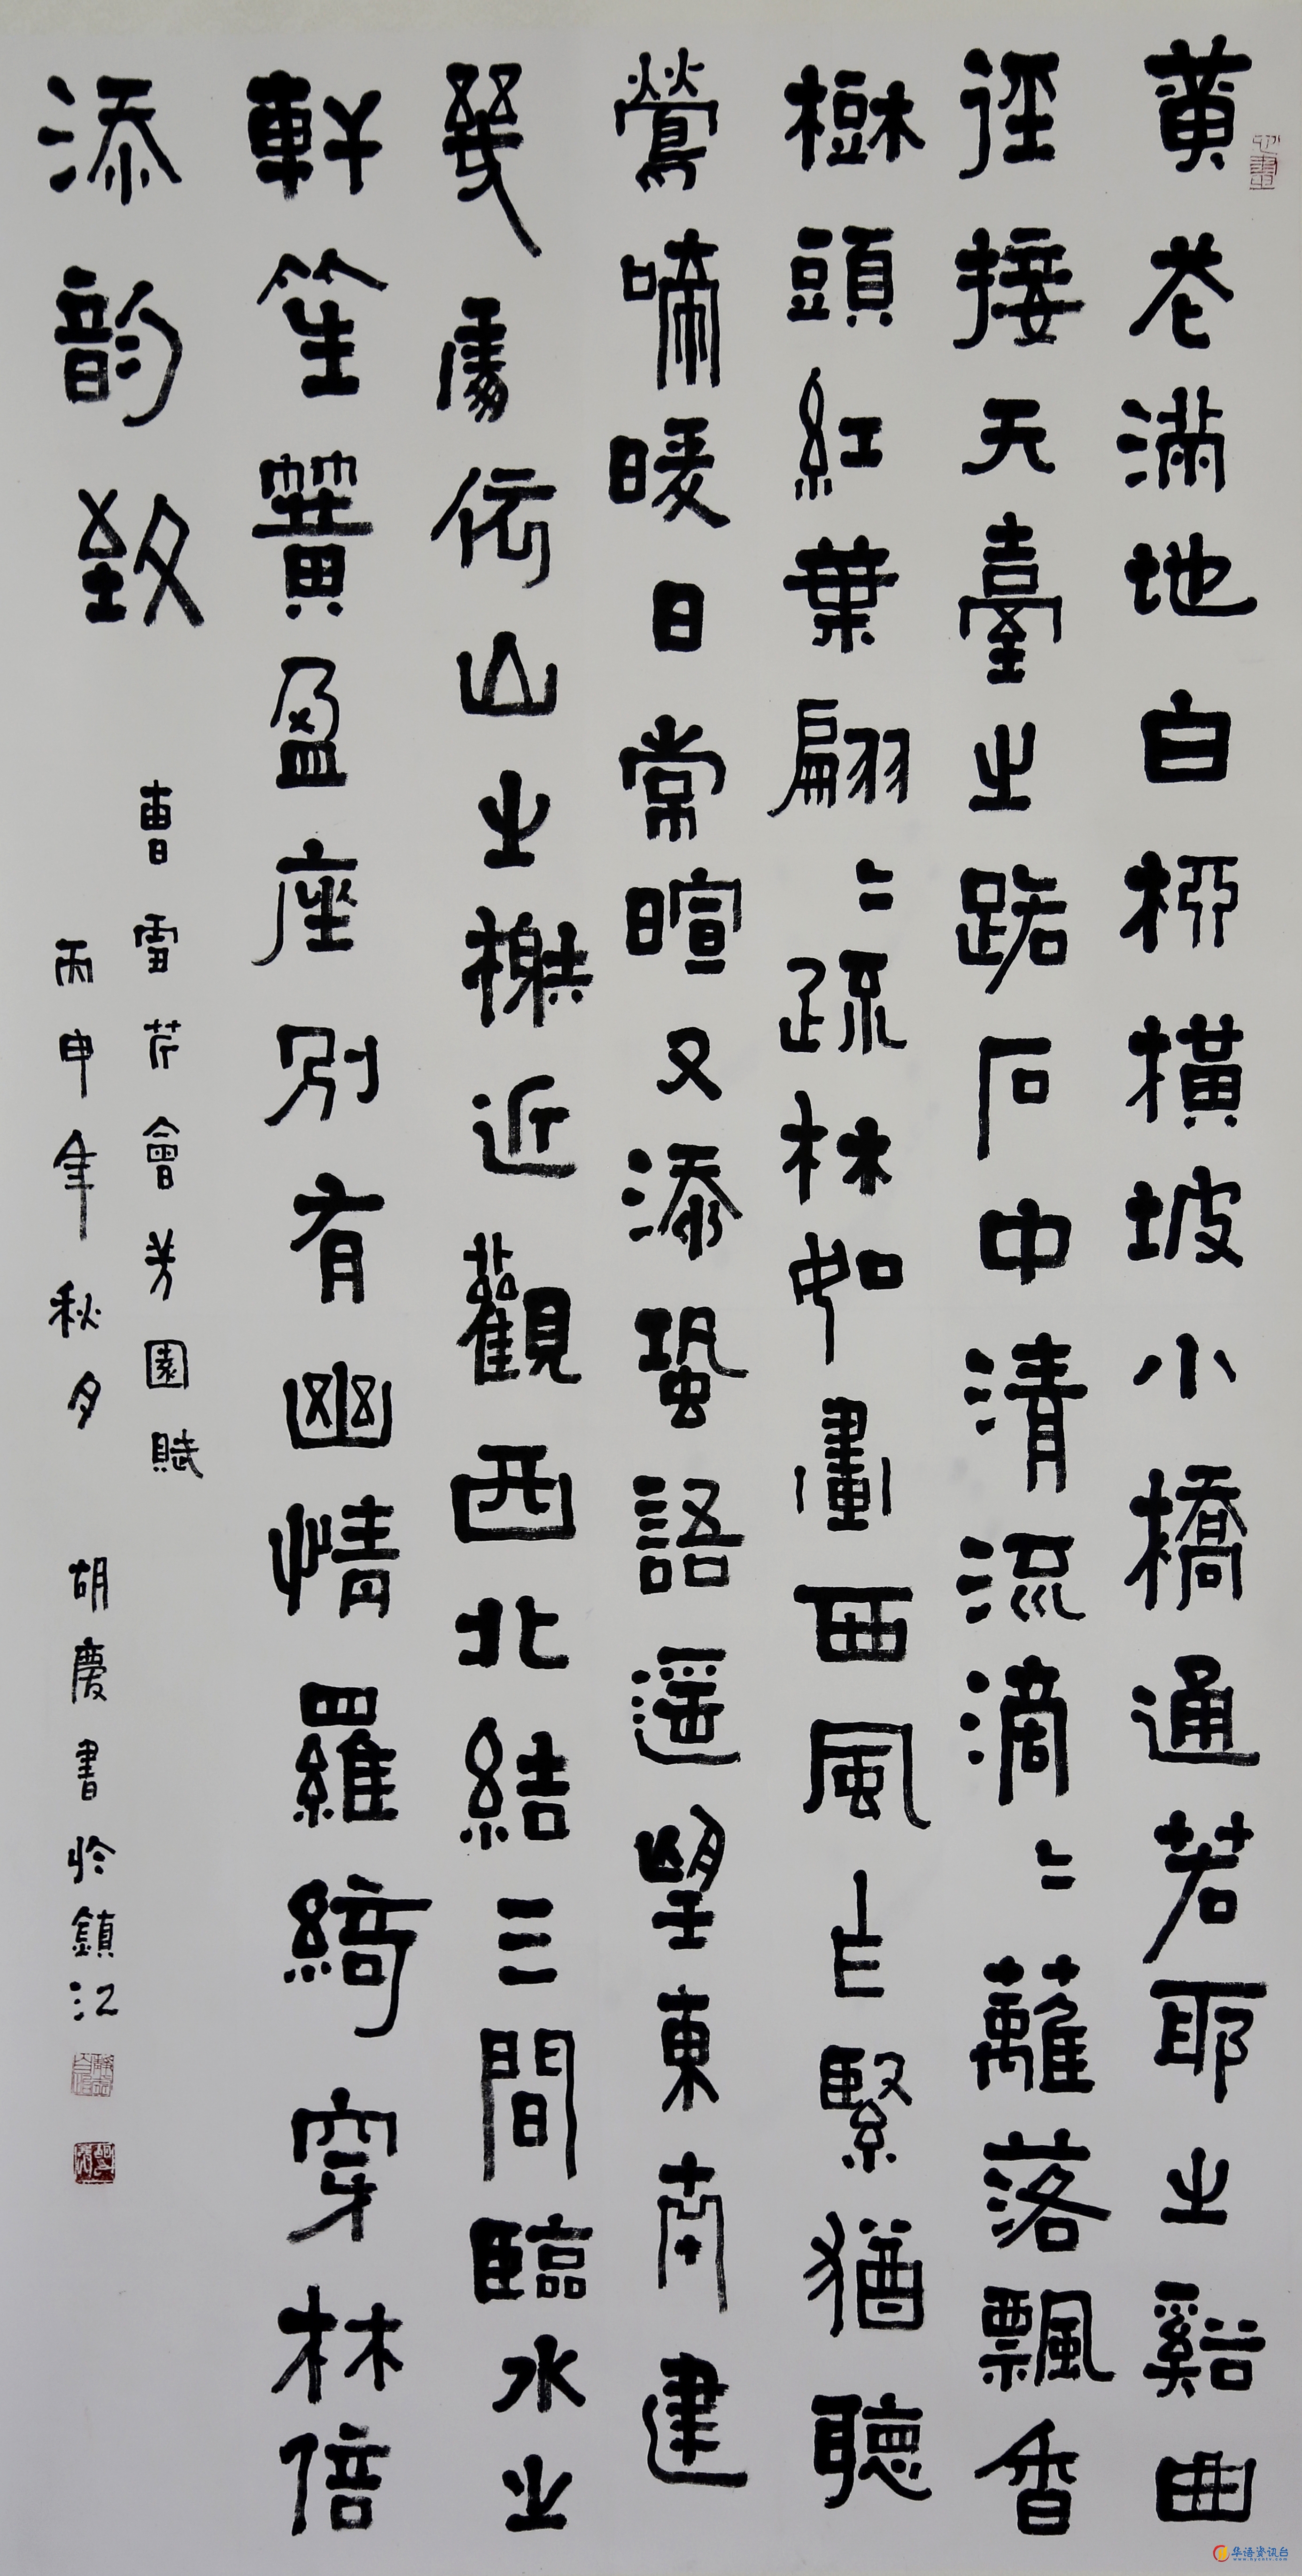 黄花滿地白柳横坡小橋通若耶之谿曲
徑接天臺之路石中清流滴〻蘺落飄香
樹頭紅葉翩〻疏林如畫西風乍緊猶聽
鶯啼暖日常暄又添蛩語遥望東南建
幾處依山之榭近觀西北結三間臨水之
軒笙簧盈座别有幽情羅綺穿林倍
添韵致
曹雪芹會芳園賦
丙申年秋月 胡慶書於鎮江
心畫
华语资讯台